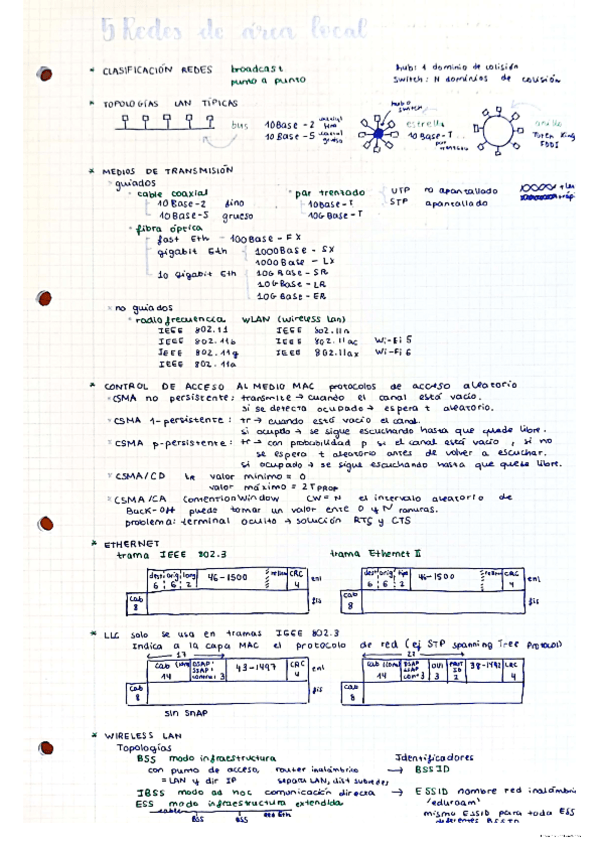 5 Redes de área local
* CLASIFICACIÓN REDES broadcast
punto a punto
hub: 1 dominio de colisión
switch: N dominios de colisión
* TOPOLOGÍAS LAN TÍPICAS
bus 10Base-2 coaxial fino
10Base-5 coaxial grueso
hub o switch
estrella
10Base-T par trenzado
anillo
Token Ring
FDDI
* MEDIOS DE TRANSMISIÓN
guiados
cable coaxial
10Base-2 fino
10Base-5 grueso
par trenzado
10Base-T
10GBase-T
UTP no apantallado
STP apantallado
fibra óptica
fast Eth 100Base-FX
gigabit Eth 1000Base-SX
1000Base-LX
10 gigabit Eth 10GBase-SR
10GBase-LR
10GBase-ER
no guiados
radiofrecuencia WLAN (wireless lan)
IEEE 802.11 IEEE 802.11n
IEEE 802.11b IEEE 802.11ac Wi-Fi 5
IEEE 802.11g IEEE 802.11ax Wi-Fi 6
IEEE 802.11a
* CONTROL DE ACCESO AL MEDIO MAC protocolos de acceso aleatorio
CSMA no persistente: transmite → cuando el canal está vacío.
si se detecta ocupado → espera t aleatorio.
CSMA 1-persistente: tr → cuando está vacío el canal.
si ocupdo → se sigue escuchando hasta que quede libre.
CSMA p-persistente: tr → con probabilidad p si el canal está vacío, si no
se espera t aleatorio antes de volver a escuchar.
si ocupado → se sigue escuchando hasta que quede libre.
CSMA/CD valor mínimo = 0
valor máximo = 2T PROP
CSMA/CA Contention Window CW = N el intervalo aleatorio de
Back-Off puede tomar un valor ente 0 y N ranuras.
problema: terminal oculto → solución RTS y CTS
* ETHERNET
trama IEEE 802.3
trama Ethernet II
dest orig long 46-1500 relleno CRC enl
6 6 2 4
cab 8 fís
dest orig tipo 46-1500 relleno CRC enl
6 6 2 4
cab 8 fís
* LLC solo se usa en tramas IEEE 802.3
Indica a la capa MAC el protocolo de red (ej STP spanning Tree Protocol)
17
14 3 43-1497 CRC 4 enl
cab 8 fís
22
14 3 OUI 3 2 38-1492 4
cab 8
sin SNAP
* WIRELESS LAN
Topologías
Identificadores
BSS modo infraestructura
con punto de acceso, router inalámbrico → BSSID
= LAN y dir IP separa LAN, dist subredes
IBSS modo ad hoc comunicación directa → ESSID nombre red inalámbri
ESS modo infraestructura extendida 'eduroam'
mismo ESSID para toda ESS
BSS BSS